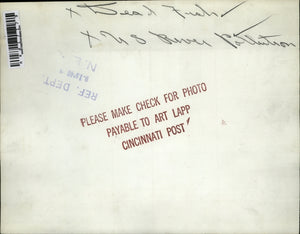 x Dead Fish
x U S River Pollution
REF. DEPT.
PLEASE MAKE CHECK FOR PHOTO
PAYABLE TO ART LAPP
CINCINNATI POST